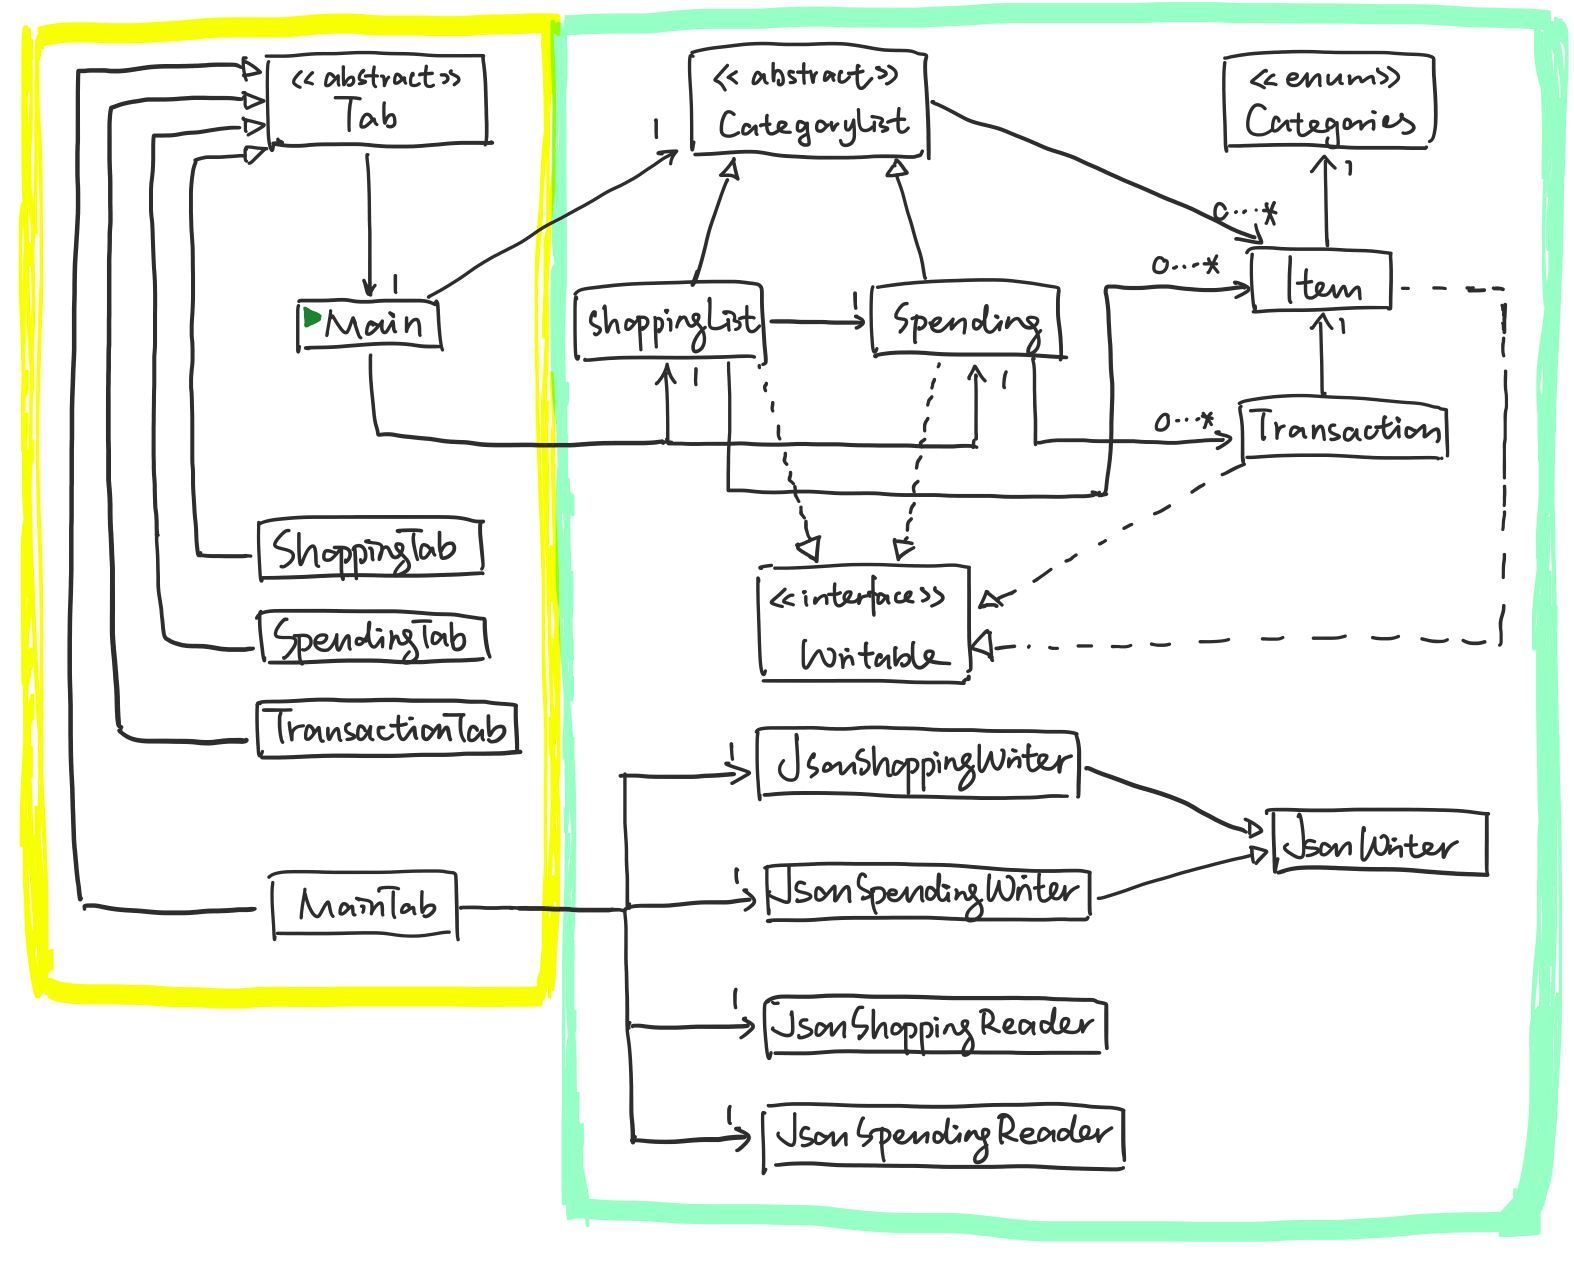 << abstract >>
Tab
1
Main
ShoppingTab
SpendingTab
TransactionTab
MainTab
<< abstract >>
CategoryList
1
<< enum >>
Categories
1
0...*
0...*
Item
1
ShoppingList
1
Spending
1
1
0...*
Transaction
<< interface >>
Writable
1
JsonShoppingWriter
1
JsonSpendingWriter
JsonWriter
1
JsonShoppingReader
1
JsonSpendingReader